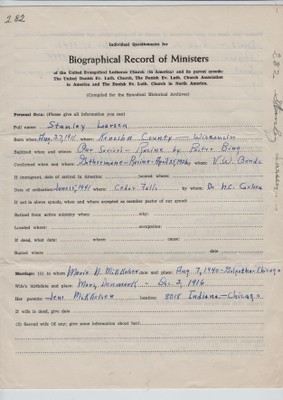 282
Individual Questionnaire for
Biographical Record of Ministers
of the United Evangelical Lutheran Church (in America) and its parent synods:
The United Danish Ev. Luth. Church, The Danish Ev. Luth. Church Association
in America and The Danish Ev. Luth. Church in North America.
(Compiled for the Synodical Historical Archives)
Personal Data: (Please give all information you can)
Full name: Stanley Larsen
Born when: 1911 where: Kenosha County - Wisconsin
Baptized when and where: Our Savior's - Racine by Pastor
Confirmed when and where: Racine - where: V.W. Bondo
If immigrant, date of arrival in America moved where:
Date of ordination: 1941 where: Cedar Falls by whom: Dr. N.C. Carlsen
If not in above synods, when and where accepted as member pastor of our synod:
Retired from active ministry when: city:
Located where: occupation:
If dead, what date: where: cause:
Buried where date
Marriage: (1) to whom: Marie date and place: Aug. 7, 1940 - Chicago
Wife's birthplace and place: Denmark - 1916
Her parents: Jens location: 8015 Indiana - Chicago
If wife is dead, give date
(2) Second wife (if any; give some information about her):
282